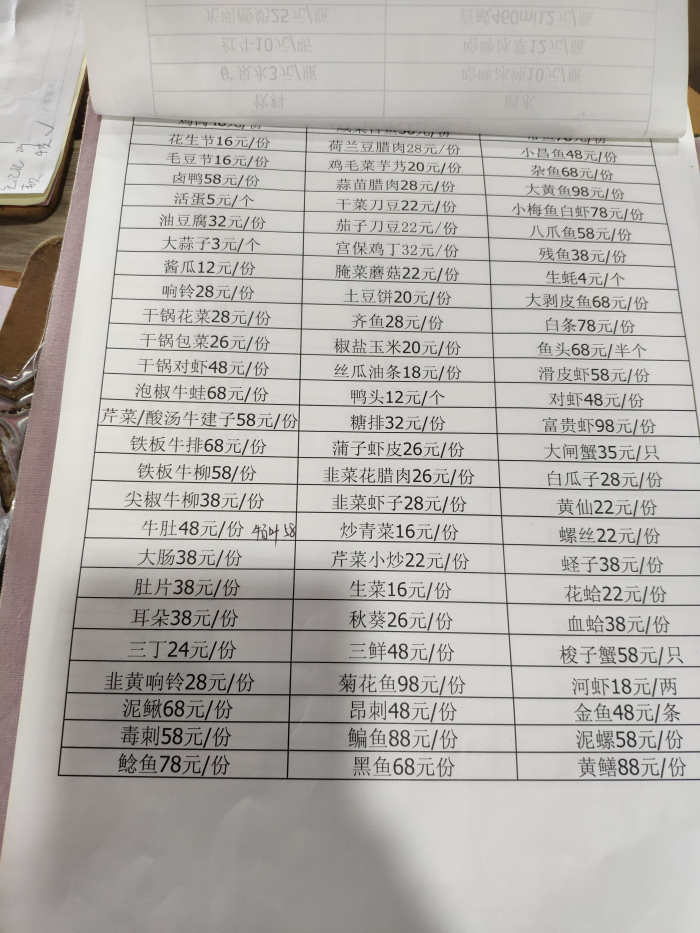 花生节16元/份 荷兰豆腊肉28元/份 小昌鱼48元/份
毛豆节16元/份 鸡毛菜芋艿20元/份 杂鱼68元/份
卤鸭58元/份 蒜苗腊肉28元/份 大黄鱼98元/份
活蛋5元/个 干菜刀豆22元/份 小梅鱼白虾78元/份
油豆腐32元/份 茄子刀豆22元/份 八爪鱼58元/份
大蒜子3元/个 宫保鸡丁32元/份 残鱼38元/份
酱瓜12元/份 腌菜蘑菇22元/份 生蚝4元/个
响铃28元/份 土豆饼20元/份 大剥皮鱼68元/份
干锅花菜28元/份 齐鱼28元/份 白条78元/份
干锅包菜26元/份 椒盐玉米20元/份 鱼头68元/半个
干锅对虾48元/份 丝瓜油条18元/份 滑皮虾58元/份
泡椒牛蛙68元/份 鸭头12元/个 对虾48元/份
芹菜/酸汤牛建子58元/份 糖排32元/份 富贵虾98元/份
铁板牛排68元/份 蒲子虾皮26元/份 大闸蟹35元/只
铁板牛柳58/份 韭菜花腊肉26元/份 白瓜子28元/份
尖椒牛柳38元/份 韭菜虾子28元/份 黄仙22元/份
牛肚48元/份 炒青菜16元/份 螺丝22元/份
大肠38元/份 芹菜小炒22元/份 蛏子38元/份
肚片38元/份 生菜16元/份 花蛤22元/份
耳朵38元/份 秋葵26元/份 血蛤38元/份
三丁24元/份 三鲜48元/份 梭子蟹58元/只
韭黄响铃28元/份 菊花鱼98元/份 河虾18元/两
泥鳅68元/份 昂刺48元/份 金鱼48元/条
毒刺58元/份 鳊鱼88元/份 泥螺58元/份
鲶鱼78元/份 黑鱼68元份 黄鳝88元/份